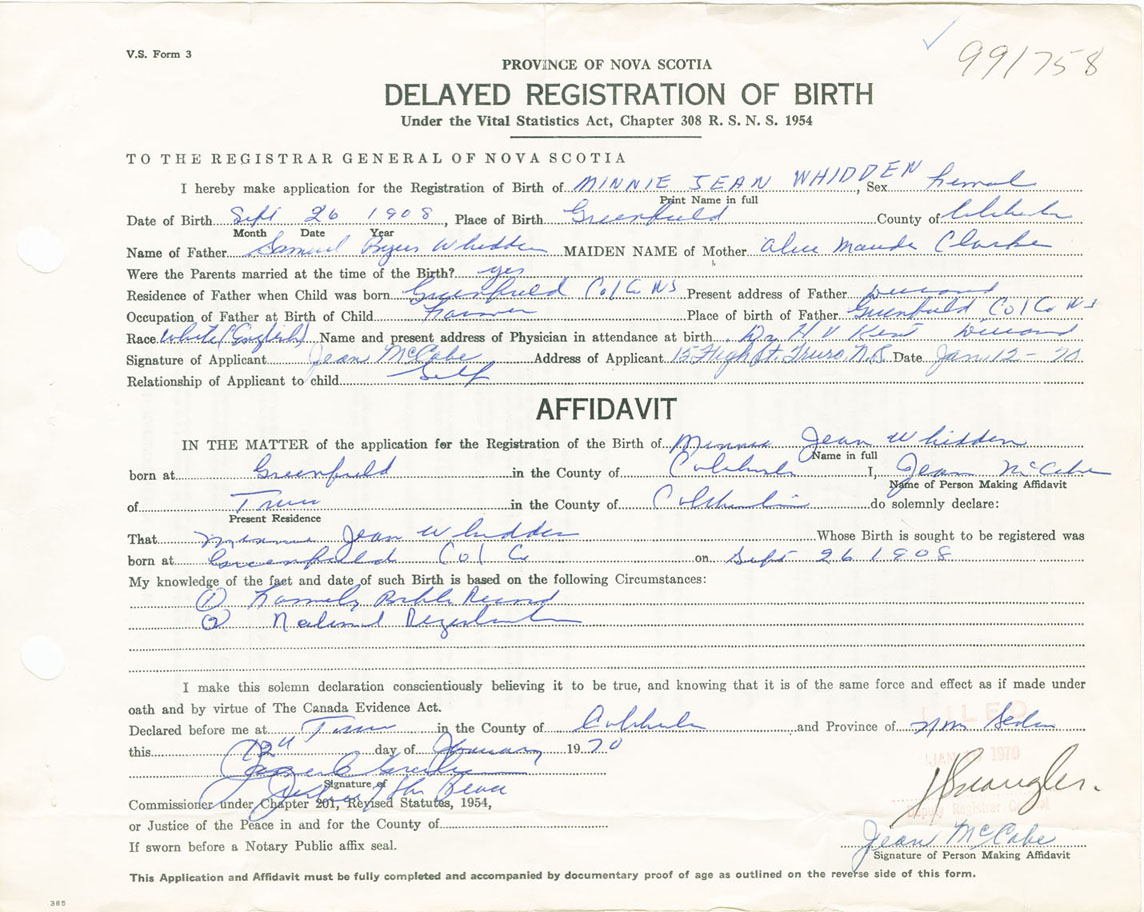 V.S. Form 3
991758
PROVINCE OF NOVA SCOTIA
DELAYED REGISTRATION OF BIRTH
Under the Vital Statistics Act, Chapter 308 R. S. N. S. 1954
TO THE REGISTRAR GENERAL OF NOVA SCOTIA
I hereby make application for the Registration of Birth of MINNIE JEAN WHIDDEN, Sex Femal
Print Name in full
Date of Birth Sept 26 1908, Place of Birth Greenfield County of Colchester
Month Date Year
Name of Father Samuel Byers Whidden MAIDEN NAME of Mother Alice Maude Clarke
Were the Parents married at the time of the Birth? yes
Residence of Father when Child was born Greenfield Col Co NS Present address of Father Deceased
Occupation of Father at Birth of Child Farmer Place of birth of Father Greenfield Col Co NS
Race White (English) Name and present address of Physician in attendance at birth Dr H V Kent Deceased
Signature of Applicant Jean McCabe Address of Applicant 15 High St Truro N.S. Date Jan 12 - 70
Relationship of Applicant to child Self
AFFIDAVIT
IN THE MATTER of the application for the Registration of the Birth of Minnie Jean Whidden
Name in full
born at Greenfield in the County of Colchester I, Jean McCabe
Name of Person Making Affidavit
of Truro in the County of Colchester do solemnly declare:
Present Residence
That Minnie Jean Whidden Whose Birth is sought to be registered was
born at Greenfield Col Co on Sept 26 1908
My knowledge of the fact and date of such Birth is based on the following Circumstances:
(1) Family Bible Record
(2) National Registration
I make this solemn declaration conscientiously believing it to be true, and knowing that it is of the same force and effect as if made under
oath and by virtue of The Canada Evidence Act.
Declared before me at Truro in the County of Colchester and Province of Nova Scotia
this 12th day of January 1970
FILED
JAN 1970
Signature of
Justice of the Peace
Commissioner under Chapter 201, Revised Statutes, 1954,
Deputy Registrar General
or Justice of the Peace in and for the County of
Jean McCabe
If sworn before a Notary Public affix seal.
Signature of Person Making Affidavit
This Application and Affidavit must be fully completed and accompanied by documentary proof of age as outlined on the reverse side of this form.
385